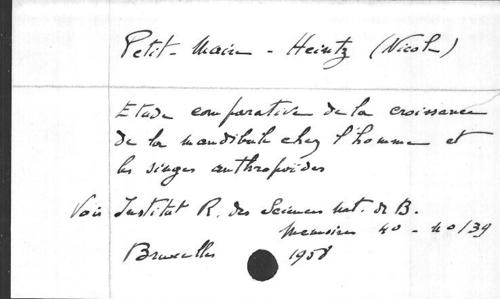 Petit-Maire-Heintz (Nicole)
Etude comparative de la croissance
de la mandibule chez l'homme et
les singes anthropoïdes
Voir Institut R. des Sciences nat. de B.
Memoires 40 - 40/39
Bruxelles 1958